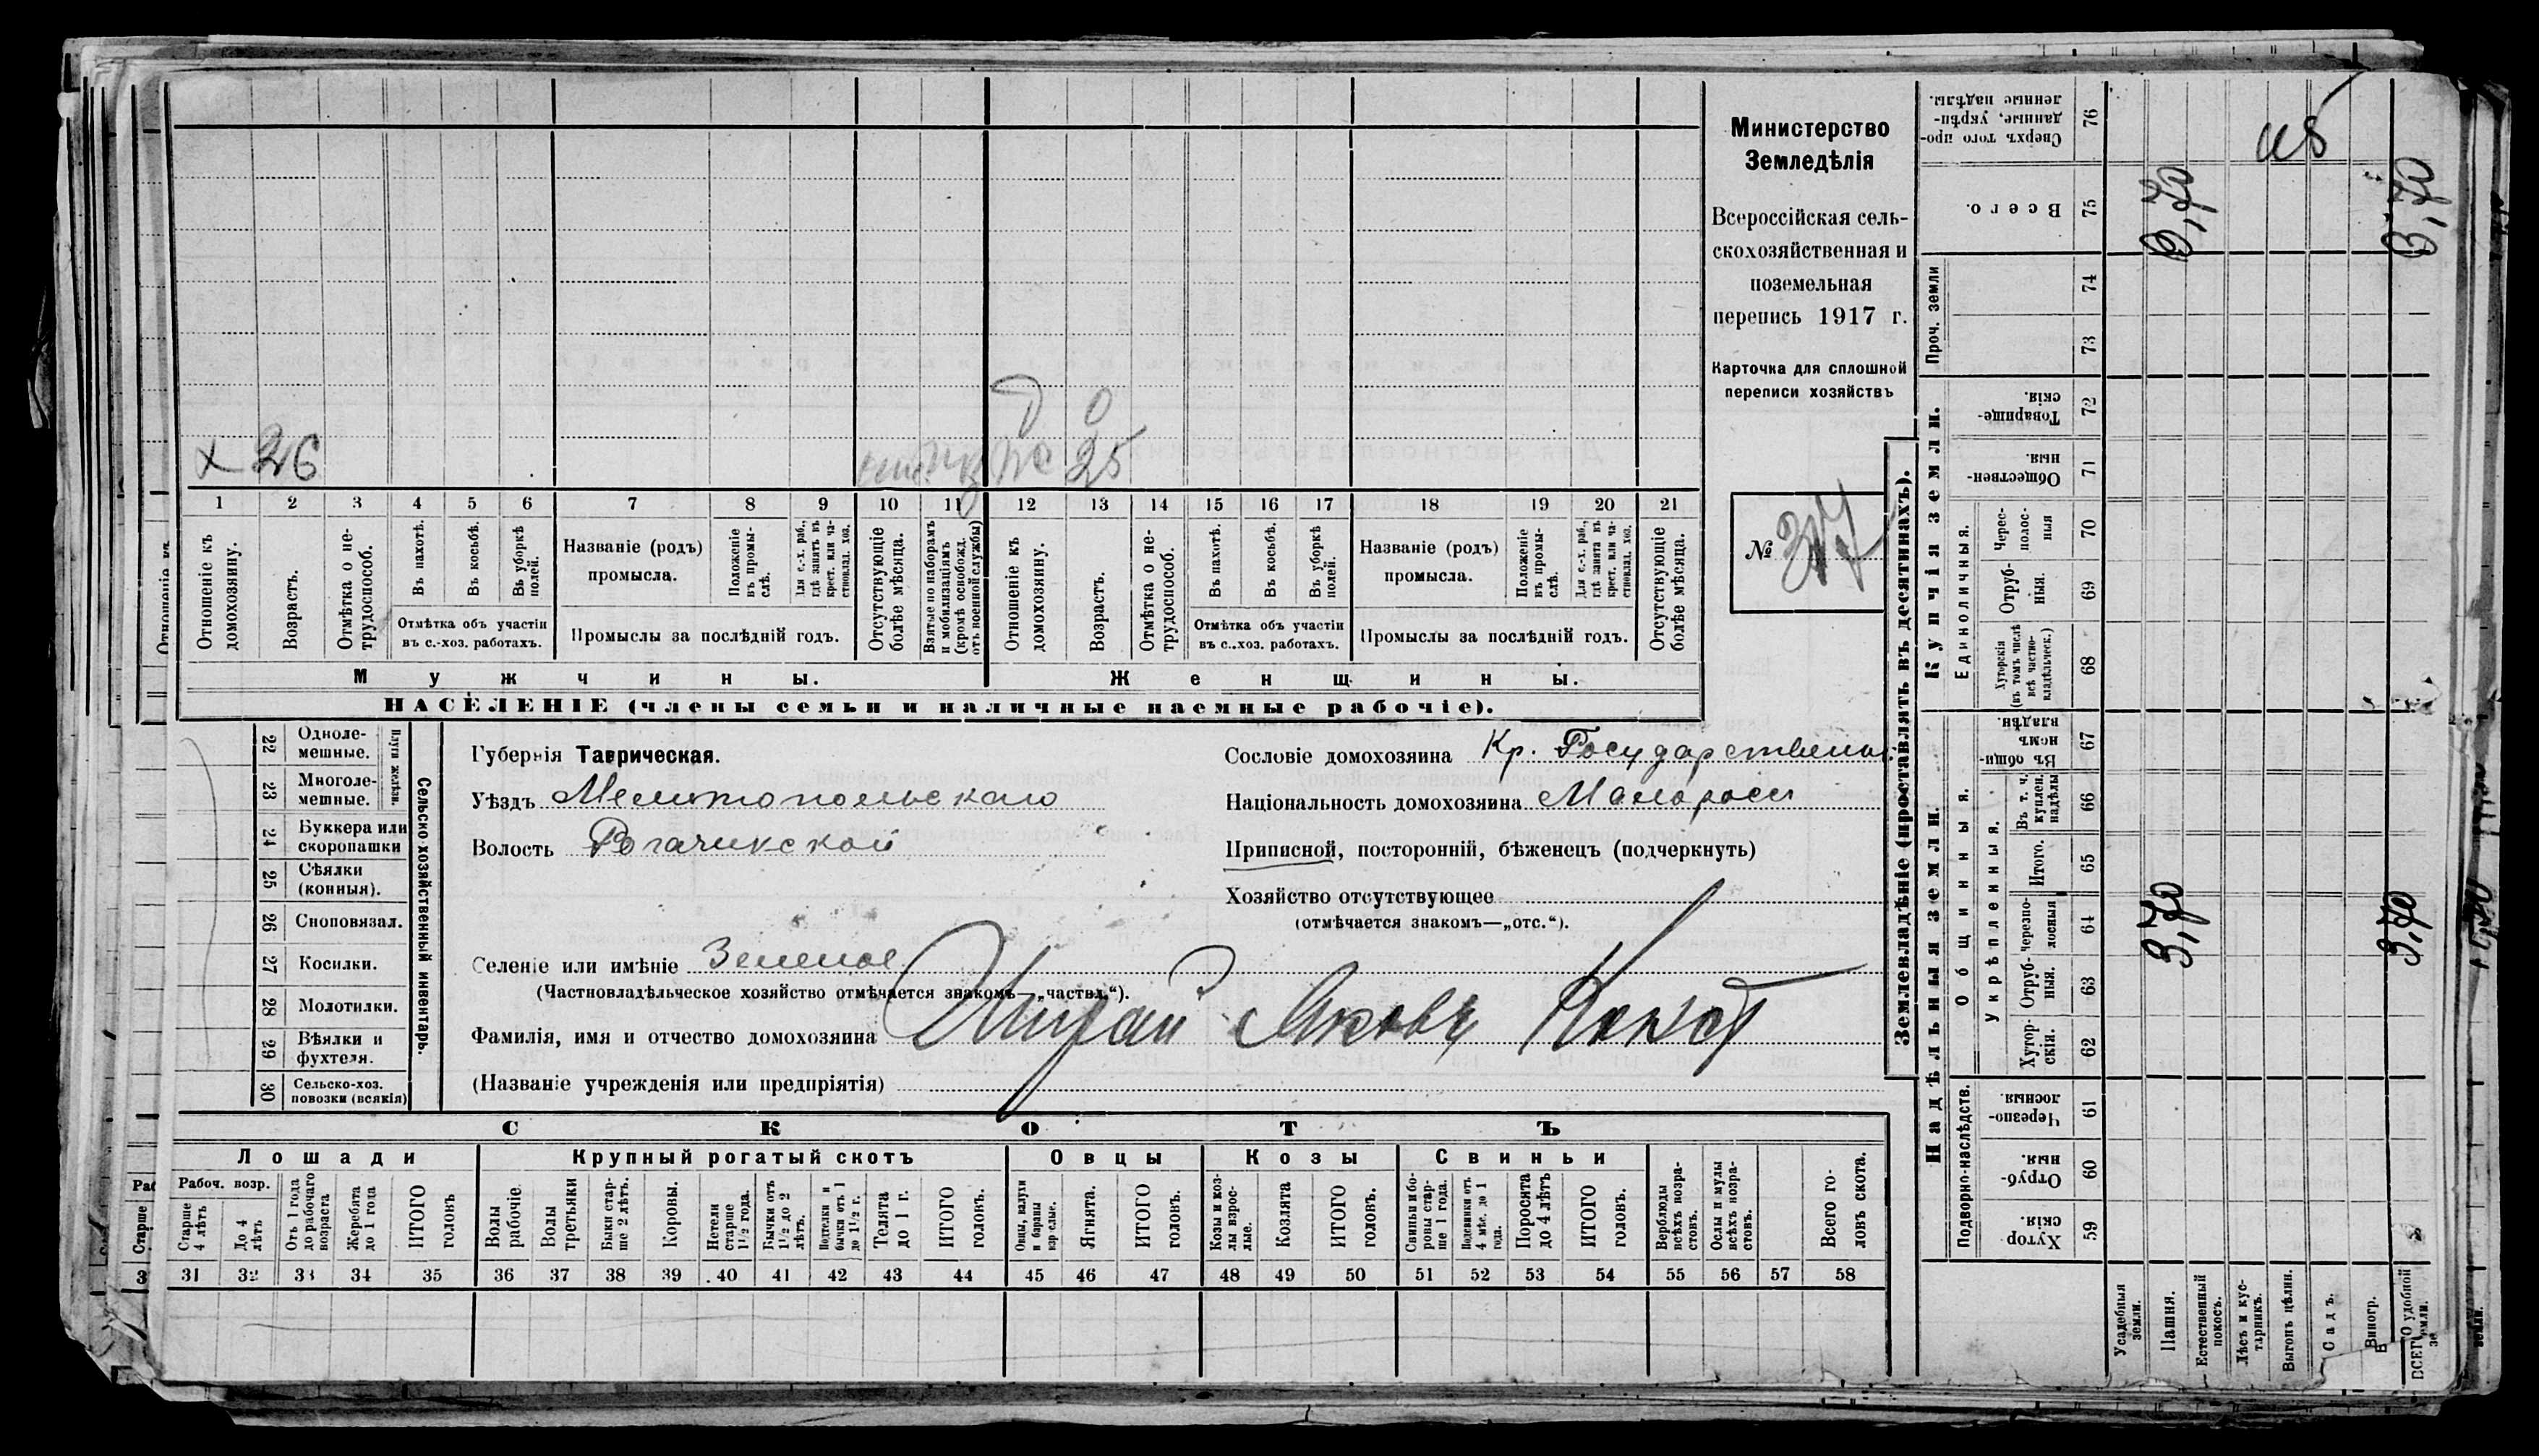 Министерство
Земледѣлія
Всероссійская сель-
скохозяйственная и
поземельная
перепись 1917 г.
Карточка для сплошной
переписи хозяйствъ
№
× 26
25
1 2 3 4 5 6 7 8 9 10 11 12 13 14 15 16 17 18 19 20 21
Отношеніе къ домохозяину.
Возрастъ.
Отмѣтка о не-трудоспособ.
Въ пахотѣ.
Въ косьбѣ.
Въ уборкѣ полей.
Отмѣтка объ участіи
въ с.-хоз. работахъ.
Названіе (родъ)
промысла.
Положеніе въ промы-слѣ.
Для с.-х. раб., гдѣ занятъ въ крест. или ча-стновлад. хоз.
Промыслы за послѣдній годъ.
Отсутствующіе болѣе мѣсяца.
Взятые по наборамъ и мобилизаціямъ (кромѣ освобожд. отъ военной службы)
Отношеніе къ домохозяину.
Возрастъ.
Отмѣтка о не-трудоспособ.
Въ пахотѣ.
Въ косьбѣ.
Въ уборкѣ полей.
Отмѣтка объ участіи
въ с..хоз. работахъ.
Названіе (родъ)
промысла.
Положеніе въ промы-слѣ.
Для с.-х. раб., гдѣ занята въ крест. или ча-стновлад. хоз.
Промыслы за послѣдній годъ.
Отсутствующіе болѣе мѣсяца.
Мужчины.
Женщины.
НАСЕЛЕНІЕ (члены семьи и наличные наемные рабочіе).
22 Одноле-мешные.
23 Многоле-мешные.
Плуги желѣзн.
24 Буккера или скоропашки
25 Сѣялки (конныя).
26 Сноповязал.
27 Косилки.
28 Молотилки.
29 Вѣялки и фухтеля.
30 Сельско-хоз. повозки (всякія)
Сельско-хозяйственный инвентарь.
Губернія Таврическая.
Уѣздъ Мелитопольскаго
Волость Рогачикской
Селеніе или имѣніе Зеленое
(Частновладѣльческое хозяйство отмѣчается знакомъ—„частвл.“).
Фамилія, имя и отчество домохозяина Яковъ
(Названіе учрежденія или предпріятія)
Сословіе домохозяина Кр. Государственный
Національность домохозяина Малоросс
Приписной, посторонній, бѣженецъ (подчеркнуть)
Хозяйство отсутствующее
(отмѣчается знакомъ—„отс.“).
СКОТЪ
Лошади
Крупный рогатый скотъ
Овцы
Козы
Свиньи
Рабоч. возр.
Старше 4 лѣтъ
До 4 лѣтъ
Отъ 1 года до рабочаго возраста
Жеребята до 1 года
ИТОГО головъ
Волы рабочіе.
Волы третьяки
Быки стар-ше 2 лѣтъ.
Коровы.
Нетели старше 1½ года.
Бычки отъ 1½ до 2 лѣтъ.
Подтелки и бычки отъ 1 до 1½ г.
Телята до 1 г.
ИТОГО головъ.
Овцы, валухи и бараны взрослые.
Ягнята.
ИТОГО головъ.
Козы и коз-лы взрос-лые.
Козлята
ИТОГО головъ.
Свиньи и бо-ровы стар-ше 1 года.
Подсвинки отъ 4 мѣс. до 1 года.
Поросята до 4 лѣтъ
ИТОГО головъ.
Верблюды всѣхъ возра-стовъ.
Ослы и мулы всѣхъ возра-стовъ.
Всего го-ловъ скота.
31 32 33 34 35 36 37 38 39 40 41 42 43 44 45 46 47 48 49 50 51 52 53 54 55 56 57 58
Землевладѣніе (проставлять въ десятинахъ).
Купчія земли.
Надѣльныя земли.
Сверхъ того про-данные, укрѣп-ленные надѣлы. 76
Всего. 75
Проч. земли
74
73
Товарище-скія. 72
Обществен-ныя 71
Единоличныя.
Черес-полос-ныя 70
Отруб-ныя. 69
Хуторскія (въ томъ числѣ всѣ частно-владѣльческ.) 68
Общинныя.
Въ общи-номъ владѣн. 67
Укрѣпленныя.
Въ т. ч. куплен. надѣлы 66
Итого. 65
Черезпо-лосныя 64
Отруб-ныя. 63
Хутор-скія. 62
Подворно-наслѣдств.
Черезпо-лосныя. 61
Отруб-ныя. 60
Хутор-скія. 59
Усадебныя земли.
Пашня.
Естественный покосъ.
Лѣсъ и кус-тарникъ.
Выгонъ цѣлин.
Садъ.
Виногр.
ВСЕГО удобной земли.
3,70
3,70
3,70
3,70